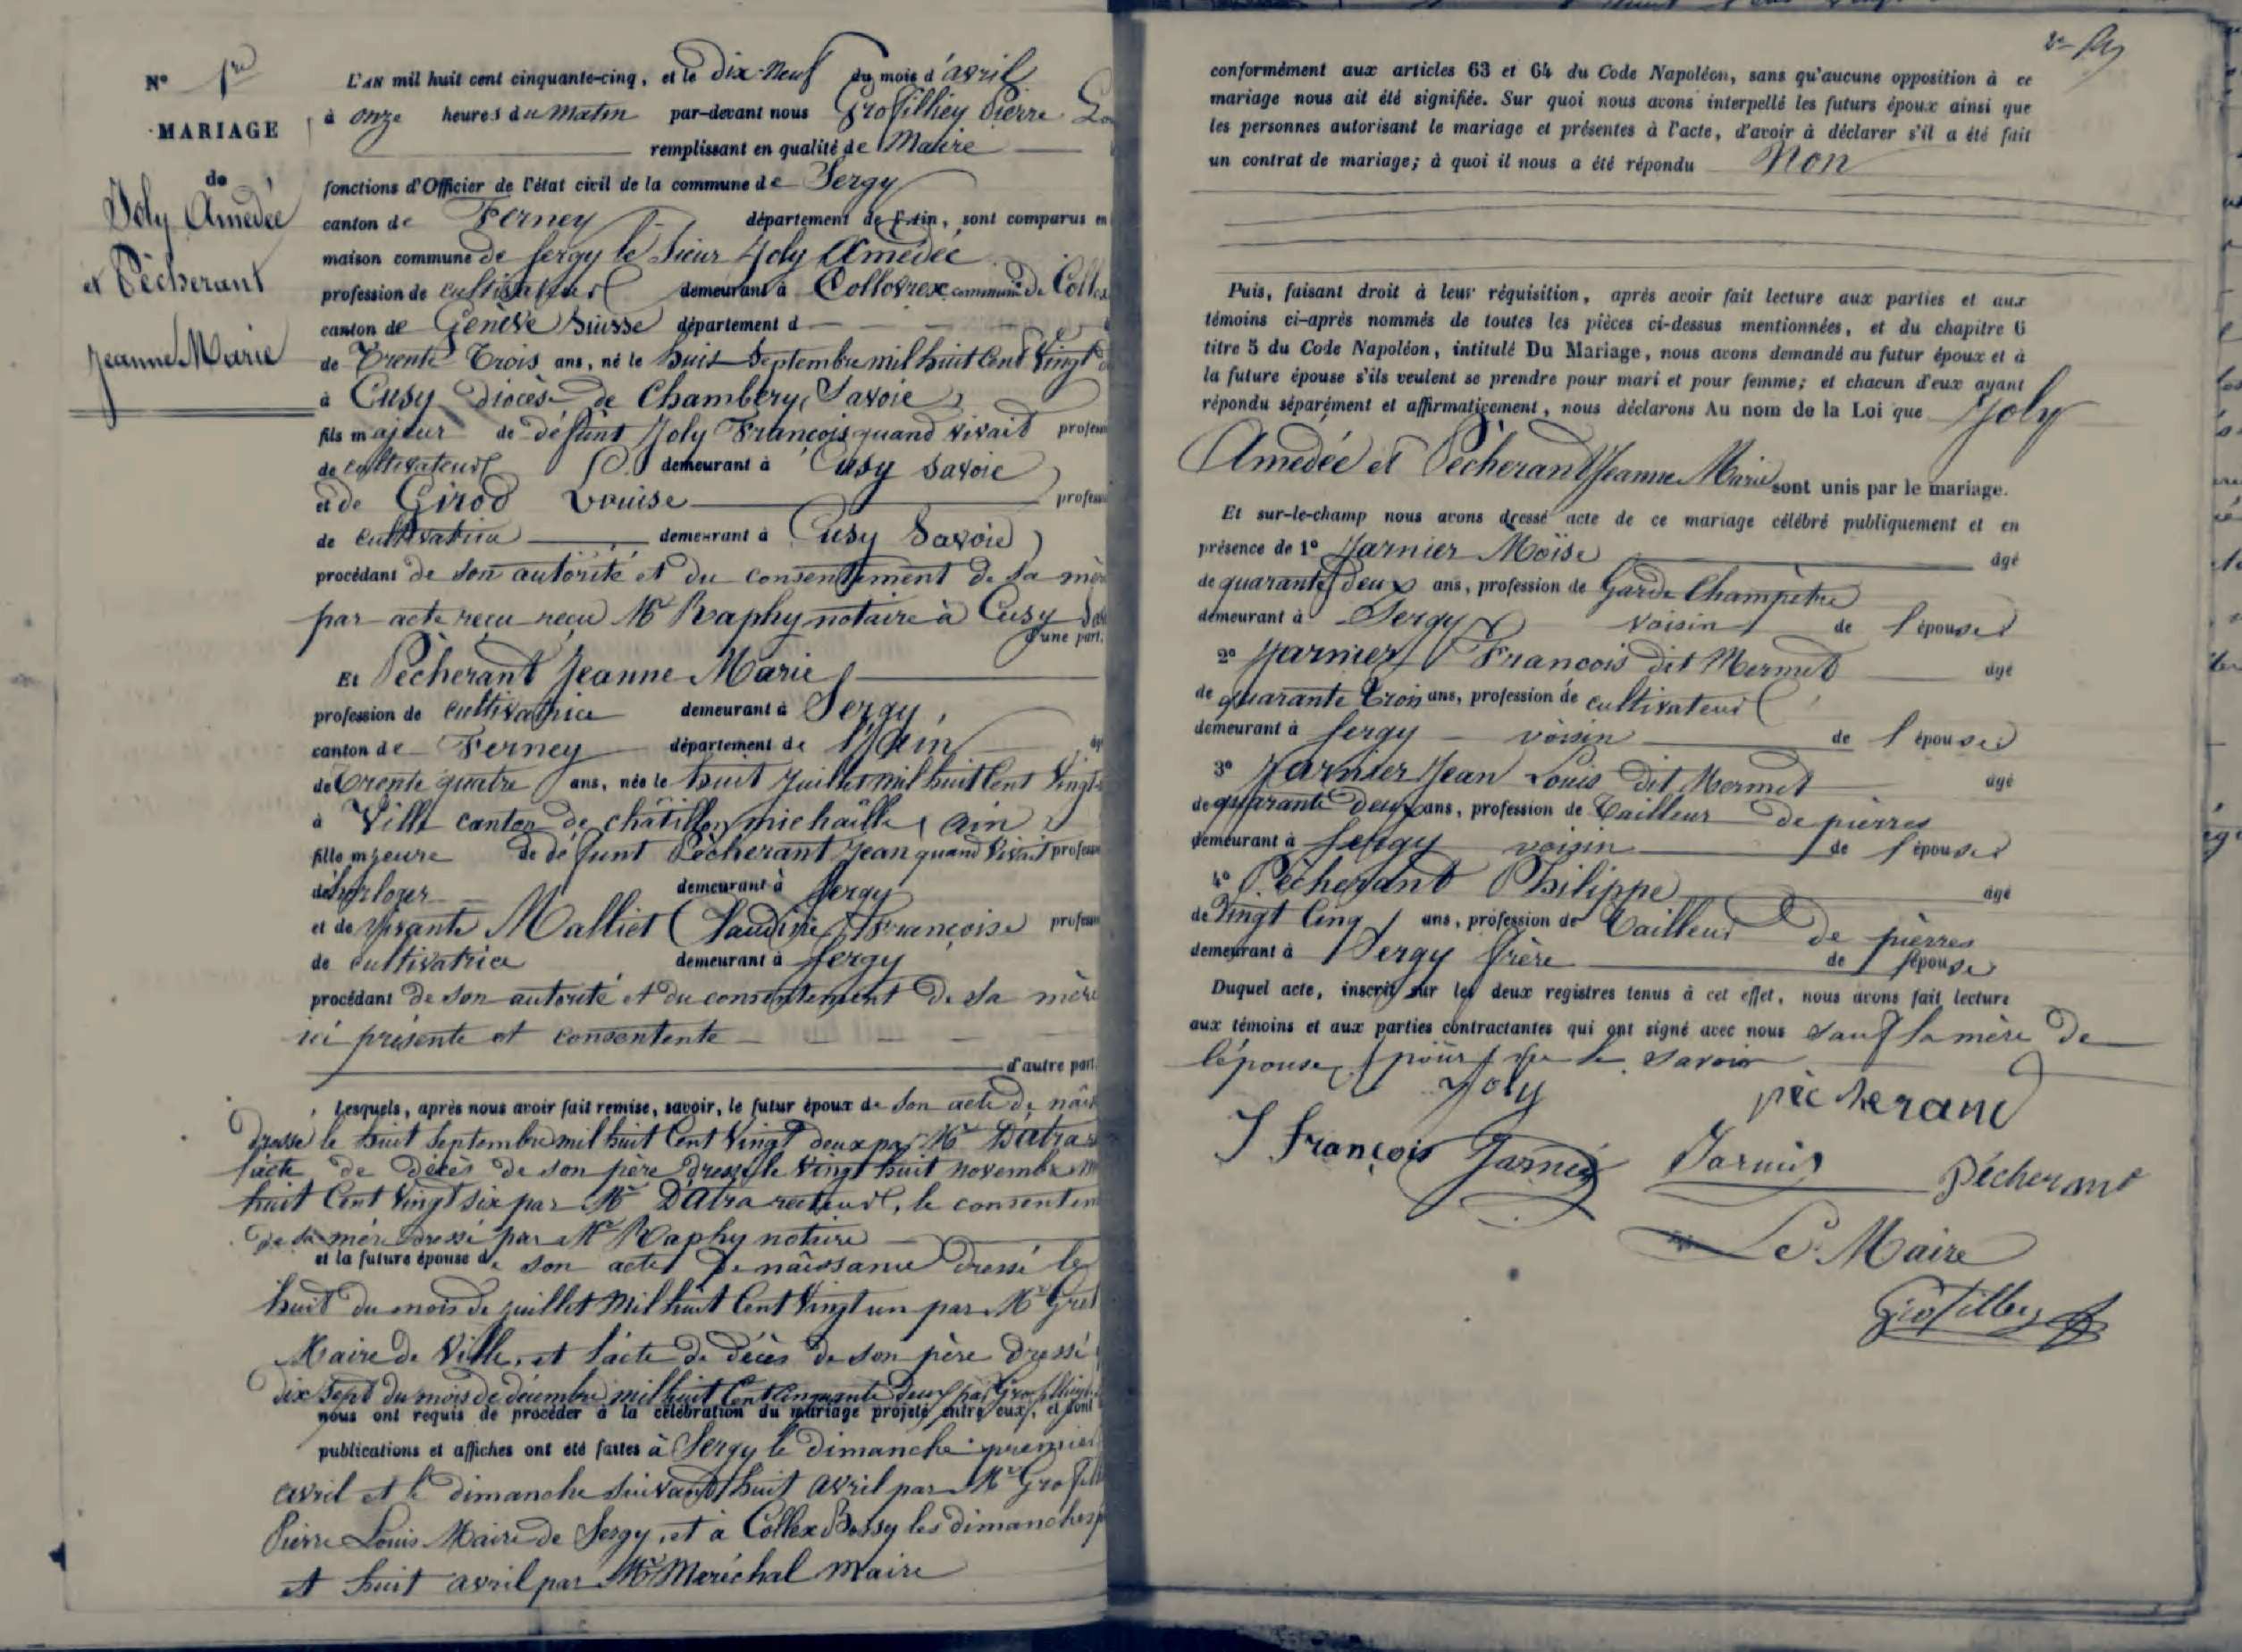 N° 1re
MARIAGE
de
Joly Amedée
et Pècherant
Jeanne Marie
L'AN mil huit cent cinquante-cinq, et le Dix-Neuf du mois d'avril
à onze heures du Matin par-devant nous Grosfilliey Pierre
remplissant en qualité de Maire
fonctions d'Officier de l'état civil de la commune de Sergy
canton de Ferney département de l'Ain, sont comparus en
maison commune de Sergy le Sieur Joly Amédée
profession de cultivateur demeurant à Collovrex commune de
canton de Genève Suisse département d
de Trente Trois ans, né le huit Septembre mil huit Cent Vingt
à Cusy Diocèse de Chambéry, Savoie
fils majeur de défunt Joly François quand vivait
de cultivateur demeurant à Cusy Savoie
et de Girod Louise
de cultivatrice demeurant à Cusy Savoie
procédant de son autorité et du consentement de sa
par acte reçu reçu Mr Raphy notaire à Cusy
d'une part.
Et Pècherant Jeanne Marie
profession de cultivatrice demeurant à Sergy,
canton de Ferney département de l'Ain
de Trente quatre ans, née le huit Juillet mil huit Cent Vingt
à Ville canton de châtillon michaille, ain
fille mjeure de défunt Pècherant Jean quand vivait
de horloger demeurant à Sergy
et de vivante Malliet Claudine Françoise
de cultivatrice demeurant à Sergy
procédant de son autorité et du consentement de sa mère
ici présente et consentente
d'autre part.
Lesquels, après nous avoir fait remise, savoir, le futur époux de son acte de
dressé le huit Septembre mil huit Cent Vingt deux par Mr Datra
l'acte de décès de son père dressé le vingt huit novembre
huit Cent Vingt six par Mr Datra recteur, le
de sa mère dressé par Mr Raphy notaire
et la future épouse de son acte de naissance dressé le
huit du mois de juillet mil huit Cent Vingt un par Mr
Maire de Ville, et l'acte de décès de son père dressé
dix sept du mois de décembre mil huit Cent Cinquante deux par
nous ont requis de procéder à la célébration du mariage projeté entre eux, et dont
publications et affiches ont été faites à Sergy le dimanche premier
avril et le dimanche suivant huit avril par Mr
Pierre Louis Maire de Sergy, et à Collex Bossy les dimanches
et huit avril par Mr Maréchal maire
conformément aux articles 63 et 64 du Code Napoléon, sans qu'aucune opposition à ce
mariage nous ait été signifiée. Sur quoi nous avons interpellé les futurs époux ainsi que
les personnes autorisant le mariage et présentes à l'acte, d'avoir à déclarer s'il a été fait
un contrat de mariage; à quoi il nous a été répondu Non
Puis, faisant droit à leur réquisition, après avoir fait lecture aux parties et aux
témoins ci-après nommés de toutes les pièces ci-dessus mentionnées, et du chapitre 6
titre 5 du Code Napoléon, intitulé Du Mariage, nous avons demandé au futur époux et à
la future épouse s'ils veulent se prendre pour mari et pour femme; et chacun d'eux ayant
répondu séparément et affirmativement, nous déclarons Au nom de la Loi que Joly
Amédée et Pècherant Jeanne Marie sont unis par le mariage.
Et sur-le-champ nous avons dressé acte de ce mariage célébré publiquement et en
présence de 1° Jarnier Moïse âgé
de quarante deux ans, profession de Garde Champêtre
demeurant à Sergy voisin de l'épouse
2° Jarnier François dit Mermet âgé
de quarante Trois ans, profession de cultivateur
demeurant à Sergy voisin de l'épouse
3° Jarnier Jean Louis dit Mermet âgé
de quarante deux ans, profession de Tailleur de pierres
demeurant à Sergy voisin de l'épouse
4° Pècherant Philippe âgé
de Vingt Cinq ans, profession de Tailleur de pierres
demeurant à Sergy frère de l'épouse
Duquel acte, inscrit sur les deux registres tenus à cet effet, nous avons fait lecture
aux témoins et aux parties contractantes qui ont signé avec nous sauf la mère de
l'épouse, pour ne le savoir
Joly
pècherant
J François Jarnier
Jarnier
Pécherant
Le Maire
Grosfilley